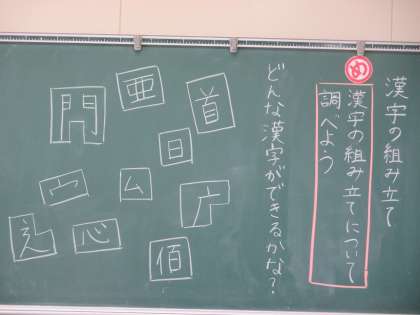 漢字の組み立て
め
漢字の組み立てについて
調べよう
どんな漢字ができるかな？
首
亜
門
日
广
ム
宀
佰
心
辶